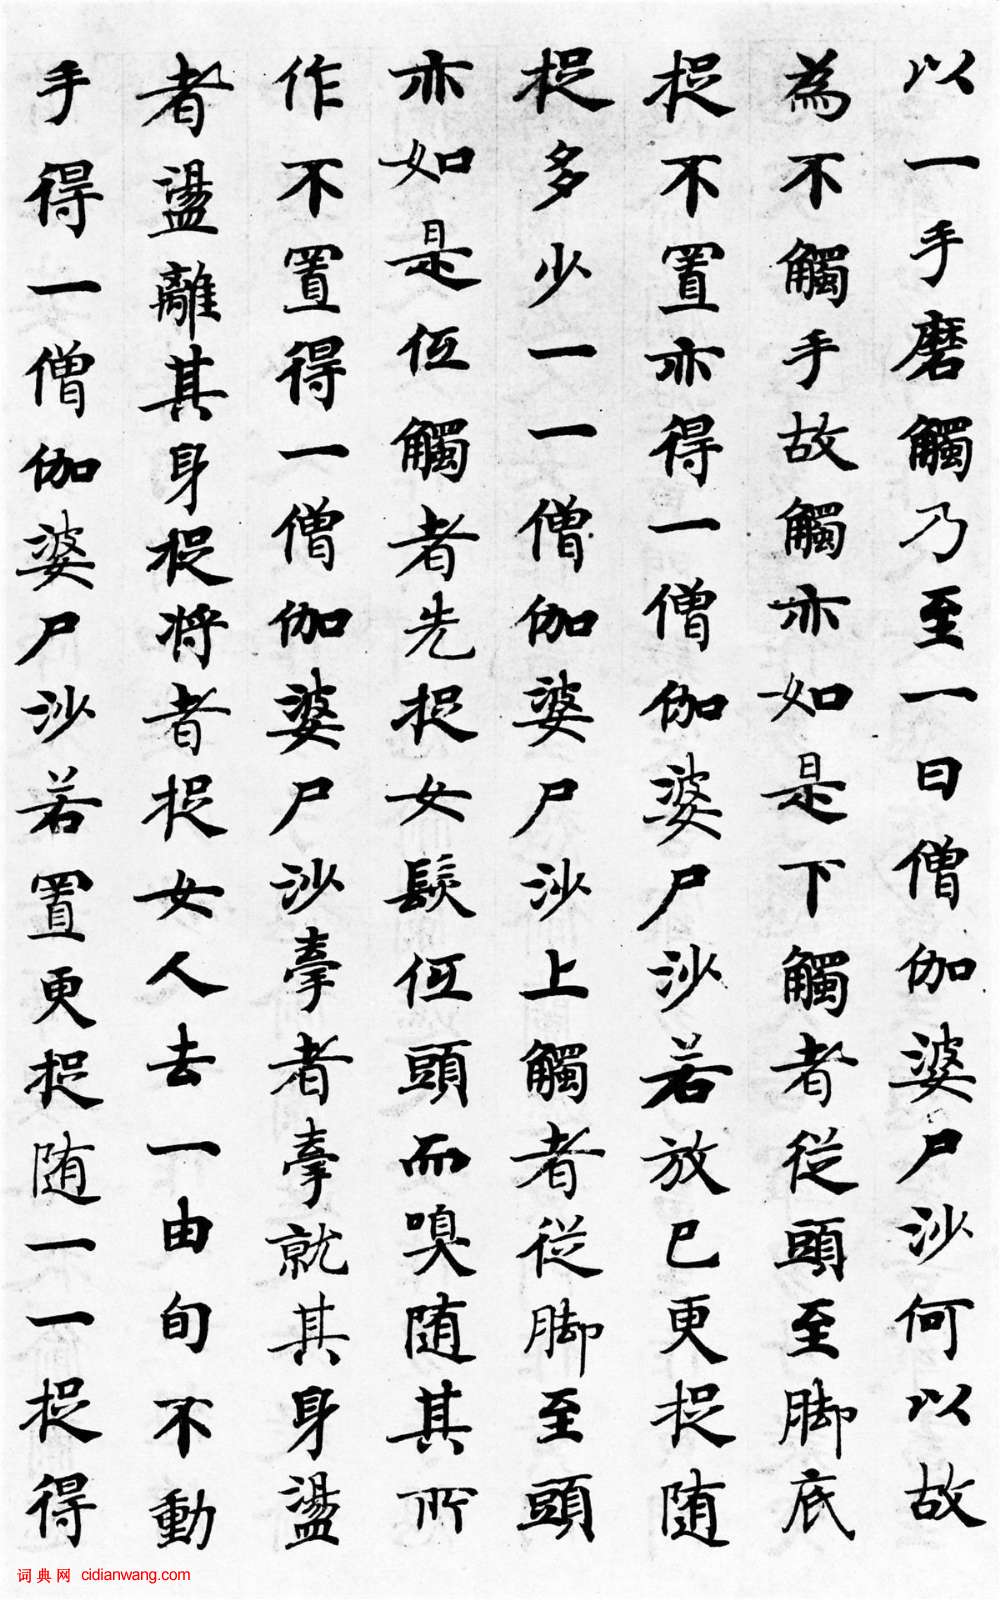 以一手磨觸乃至一日僧伽婆尸沙何以故
為不觸手故觸亦如是下觸者從頭至脚底
捉不置亦得一僧伽婆尸沙若放已更捉随
捉多少一一僧伽婆尸沙上觸者從脚至頭
亦如是伍觸者先捉女髮伍頭而嗅随其所
作不置得一僧伽婆尸沙牽者牽就其身盪
者盪離其身捉将者捉女人去一由旬不動
手得一僧伽婆尸沙若置更捉随一一捉得
词典网 cidianwang.com